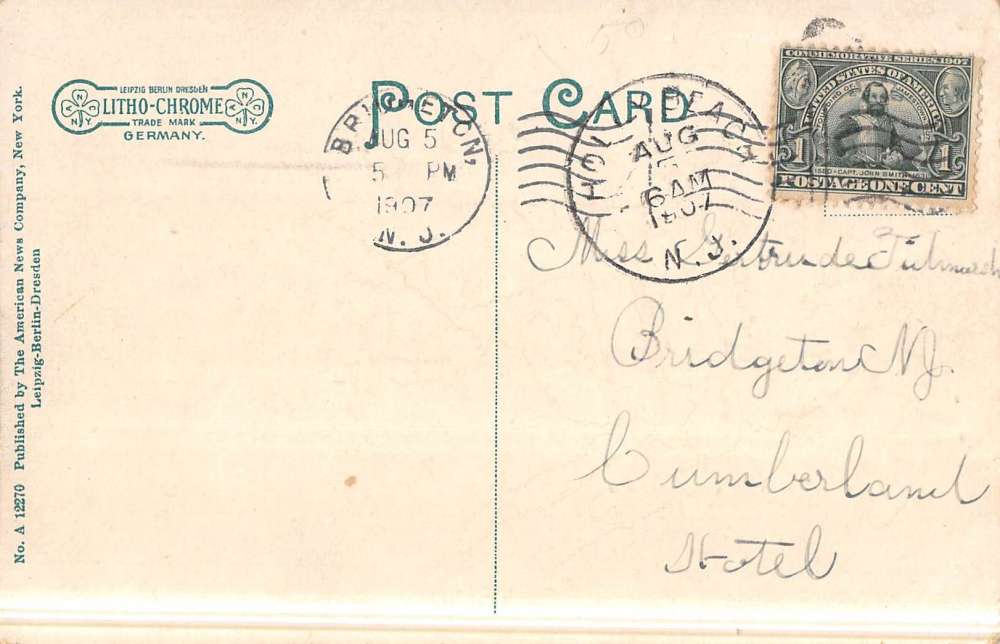 POST CARD
LEIPZIG BERLIN DRESDEN
LITHO-CHROME
TRADE MARK
GERMANY.
No. A 12270 Published by The American News Company, New York.
Leipzig-Berlin-Dresden
AUG 5
5 PM
1907
N. J.
BEACH
AUG
6 AM
1907
N. J.
COMMEMORATIVE SERIES 1907
UNITED STATES OF AMERICA
1580 · CAPT. JOHN SMITH · 1631
1 1
POSTAGE ONE CENT
Miss Gertrude
Bridgeton NJ.
Cumberland
Hotel